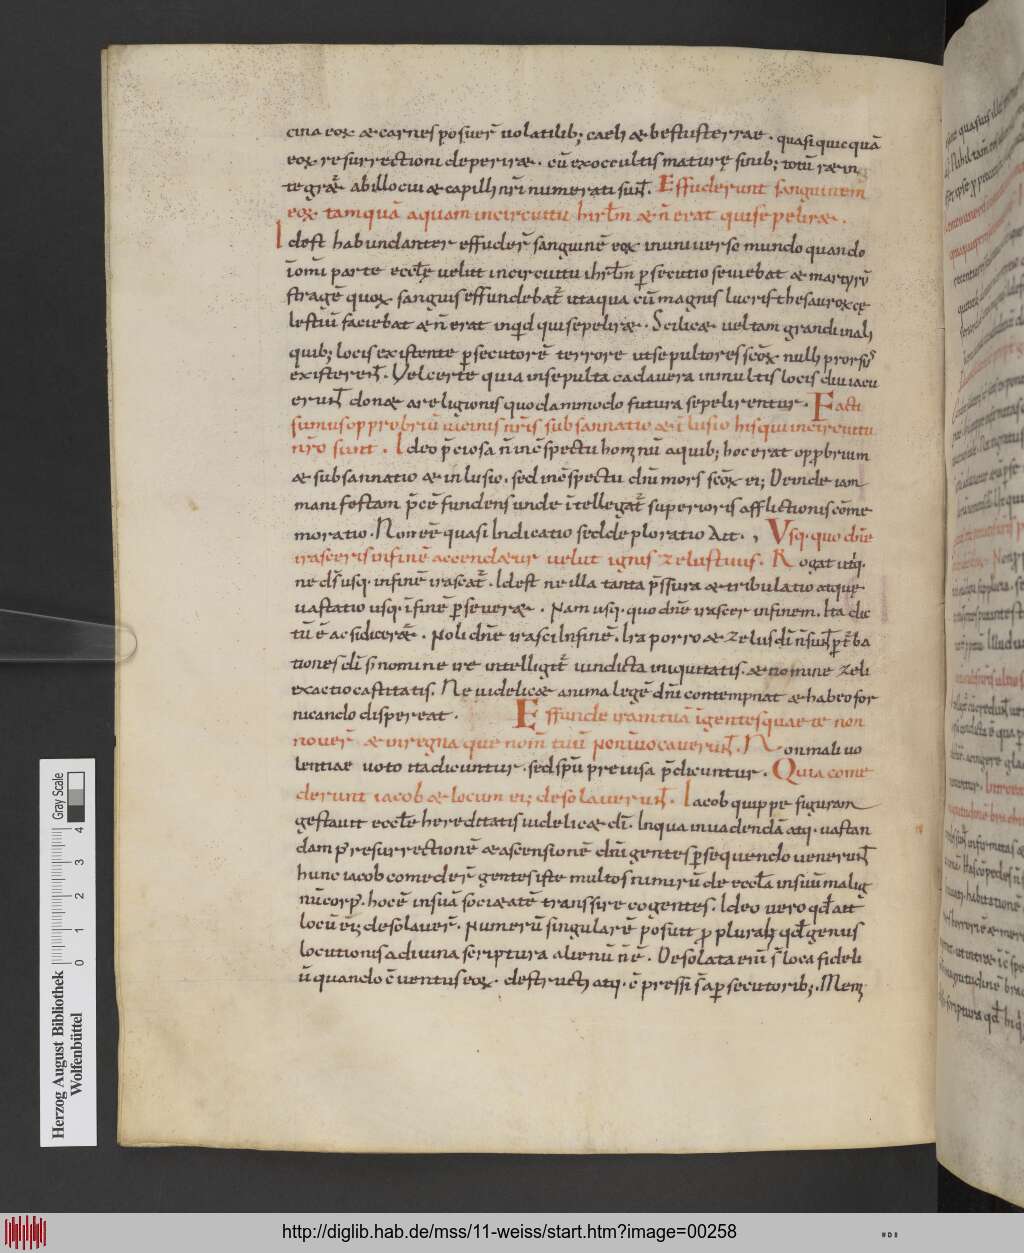 cina eoꝝ & carnes posuer̄ uolatilib; caeli & bestiis terrae. quasi quicquā
eoꝝ resurrectioni deperir&. cū exoccultis maturę sinib; totū r& in
tegr& ab illo cui & capilli nr̄i numerati sun̄t. Effuderunt sanguinem
eoꝝ tamquā aquam incircuitu hirl̄m & n̄ erat qui sepelir&.
Idest habundanter effuder̄ sanguinē eoꝝ inuniuerso mundo quando
īomi parte eccl̄ę uelut incircuitu ihrl̄m p̄secutio seuiebat & martyrū
stragē quoꝝ sanguis effundebat̄ utaqua cū magnis lucris thesauroꝝ cę
lestiū faciebat & n̄ erat inq'd qui sepelir&. Scilic& uel tam grandi mali
quib; locis existente p̄secutorē terrore ut sepultores scōꝝ nulli prorsus
existeren̄t. Vel certe quia insepulta cadauera inmultis locis diu iacu
erun̄t donae areligionis quodammodo futura sepelirentur. Facti
sumus opprobriū uicinis nr̄is subsannatio & ī lusio his qui incircuitu
nr̄o sunt. Ideo p̄ciosa n̄ inc̄spectu hom̄nū aquib; hoc erat opp̄brium
& subsannatio & inlusio. sed inc̄spectu dn̄i mors scōꝝ ei; Deinde iam
manifestam p̄cē fundens unde ītellegat̄ superioris afflictionis cōme
moratio. Non eē quasi Indicatio sed deploratio Att. , Vsq. quo dn̄e
irasceris infinē accend&ur uelut ignis zelus tuus. Rogat utiq.
ne ds̄ usq. infinē irascat̄. Idest ne illa tanta p̄ssura & tribulatio atque
uastatio usq. īfinē p̄seuer&. Nam usq. quo dn̄e irascer infinem. Ita dic
tū ē ac si dicer&. Noli dn̄e irasci Infinē. Ira porro & zelus dī n̄ sun̄t p̄t̄ba
tiones dī si nomine ire intelligit̄ uindicta iniquitatis. & nomine zeli
exactio castitatis. Ne uidelic& anima legē dn̄i contempnat & habeo for
nicando dispereat. Effunde iram tuā īgentes quae te non
nouer̄ & inregna que nom̄ tuū non inuocauerun̄t. Non mali uo
lentiae uoto ita dicuntur. sed sp̄u preuisa p̄dicuntur. Quia come
derunt iacob & locum ei; desolauerun̄t. Iacob quippe figuram
gestauit eccl̄e hereditatis uidelic& dī. Inqua inuadendā atq. uastan
dam p' resurrectionē & ascensionē dn̄i gentes p̄sequendo uenerun̄t
hunc iacob comeder̄ gentes iste multos nimirū de eccl̄a insuū malig
nū corp'. hoc ē insuā soci&atē transire cogentes. Ideo uero qd̄ att̄
locū ei; desolauer̄. Numerū singularē posuit p plurali qd̄ genus
locutionis adiuina scriptura alienū n̄ ē. Desolata enī s̄ loca fideli
ū quando c̄uentus eoꝝ. destructi atq. c̄pressi s̄ ap̄secutorib;. Mem;
Gray Scale
0 1 2 3 4
Herzog August Bibliothek
Wolfenbüttel
http://diglib.hab.de/mss/11-weiss/start.htm?image=00258